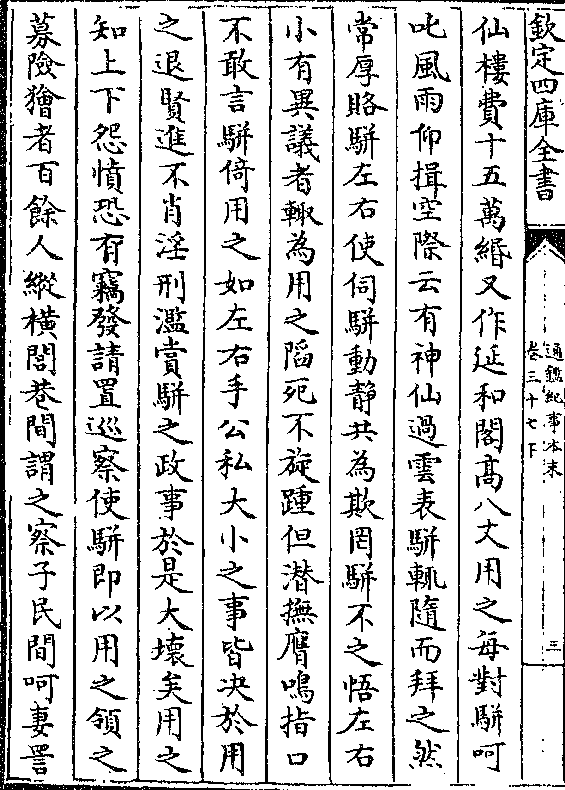 欽定四庫全書
通鑑紀事本末
卷三十七下
三
仙樓費十五萬緡又作延和閣髙八丈用之每對駢呵
叱風雨仰揖空際云有神仙過雲表駢輒隨而拜之然
常厚賂駢左右使伺駢動静共為欺罔駢不之悟左右
小有異議者輙為用之陷死不旋踵但潜撫膺鳴指口
不敢言駢倚用之如左右手公私大小之事皆决於用
之退賢進不肖淫刑濫賞駢之政事於是大壞矣用之
知上下怨憤恐有竊發請置巡察使駢即以用之領之
募險獪者百餘人縱横閭巷間謂之察子民間呵妻詈